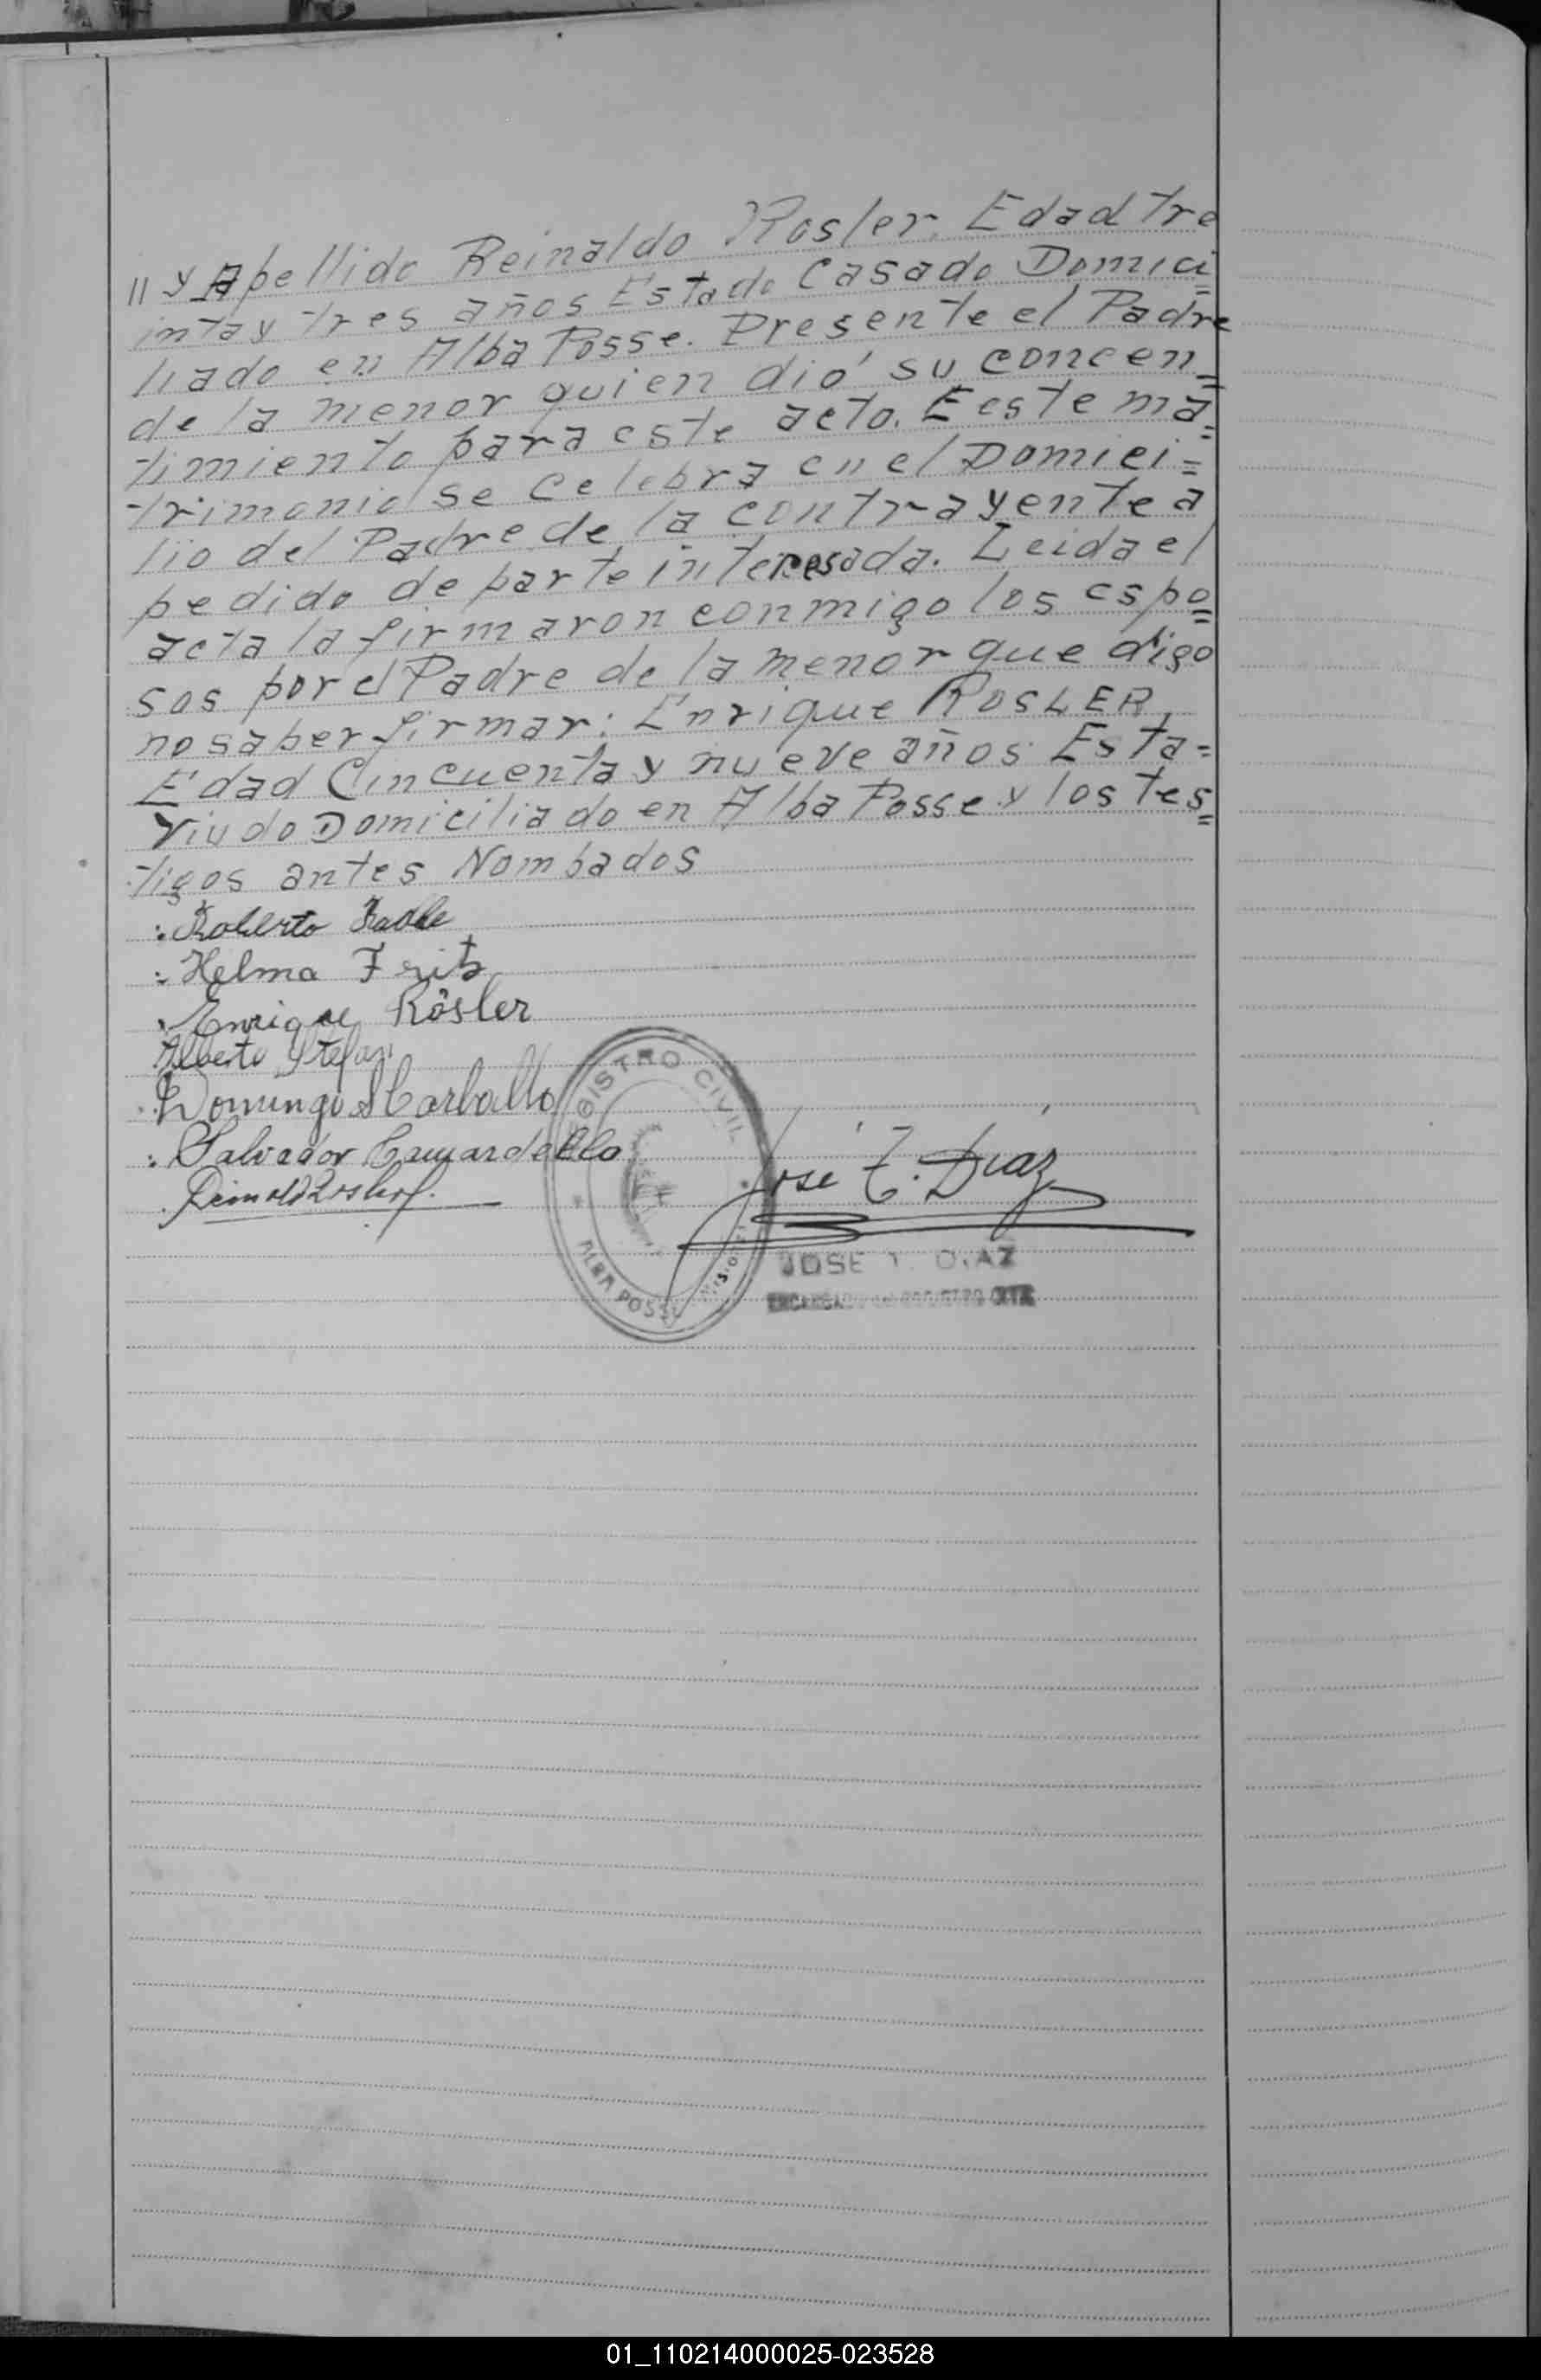 11 y Apellido Reinaldo Rosler. Edad tre
inta y tres años Estado Casado Domici
liado en Alba Posse. Presente el Padre
de la menor quien dió su concen=
timiento para este acto. Eeste ma=
trimonio se celebra en el Domici=
lio del Padre de la contrayente a
pedido de parte interesada. Leida el
acta la firmaron conmigo los espo=
sos por el Padre de la menor que digo
no saber firmar: Enrique ROSLER,
Edad Cincuenta y nueve años Esta=
Viudo Domiciliado en Alba Posse y los tes=
tigos antes Nombados
Roberto
Helma Fritz
Enrique Rösler
Alberto Stefani
Domingo Carballo
Salvador Camardella
José T. Diaz
REGISTRO CIVIL
ALBA POSSE MISIONES
JOSE T. DIAZ
ENCARGADO REGISTRO CIVIL
01_110214000025-023528